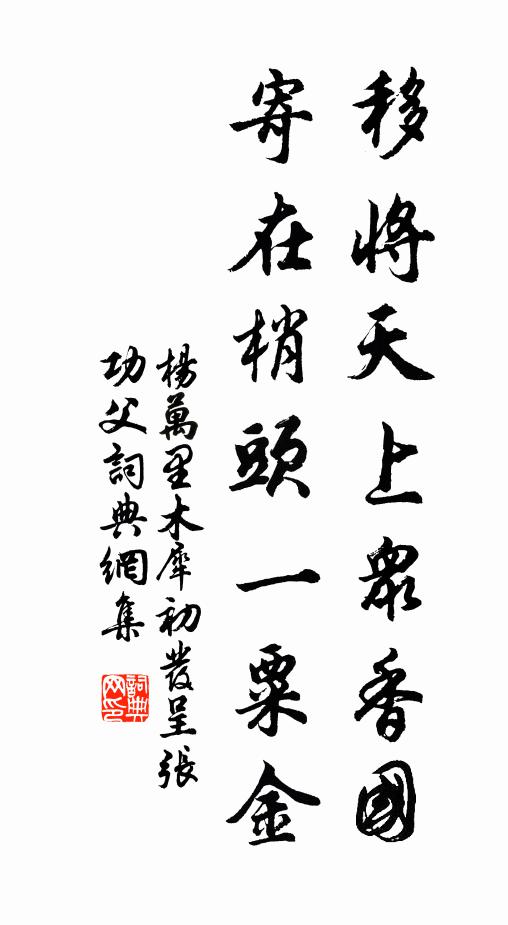 移將天上眾香國
寄在梢頭一粟金
楊萬里木犀初發呈張
功父詞典網集
詞典网印